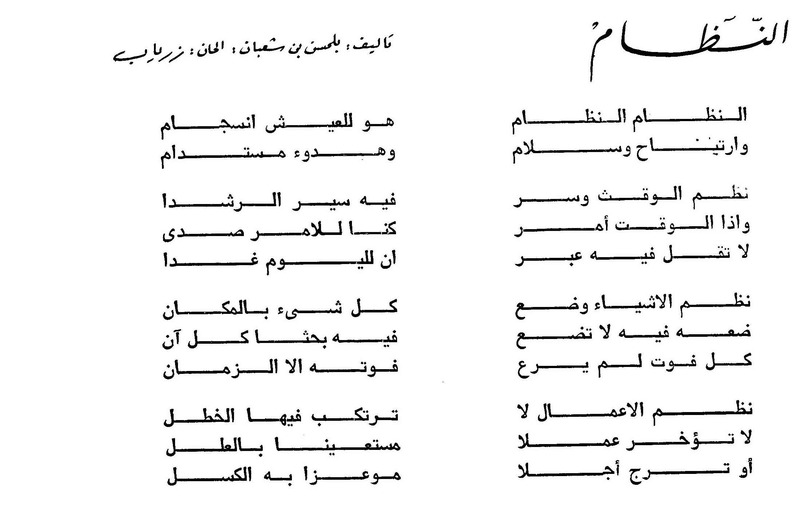 النّظام
تأليف: بلحسن بن شعبان؛ الحان: زرياب
النظام النظام هو للعيش انسجام
وارتياح وسلام وهدوء مستدام
نظم الوقت وسر فيه سير الرشدا
واذا الوقت أمر كنا للامر صدى
لا تقل فيه عبر ان لليوم غدا
نظم الاشياء وضع كل شىء بالمكان
ضعه فيه لا تضع فيه بحثا كل آن
كل فوت لم يرع فوته الا الزمان
نظم الاعمال لا ترتكب فيها الخطل
لا تؤخر عملا مستعينا بالعلل
أو ترج أجلا موعزا به الكسل